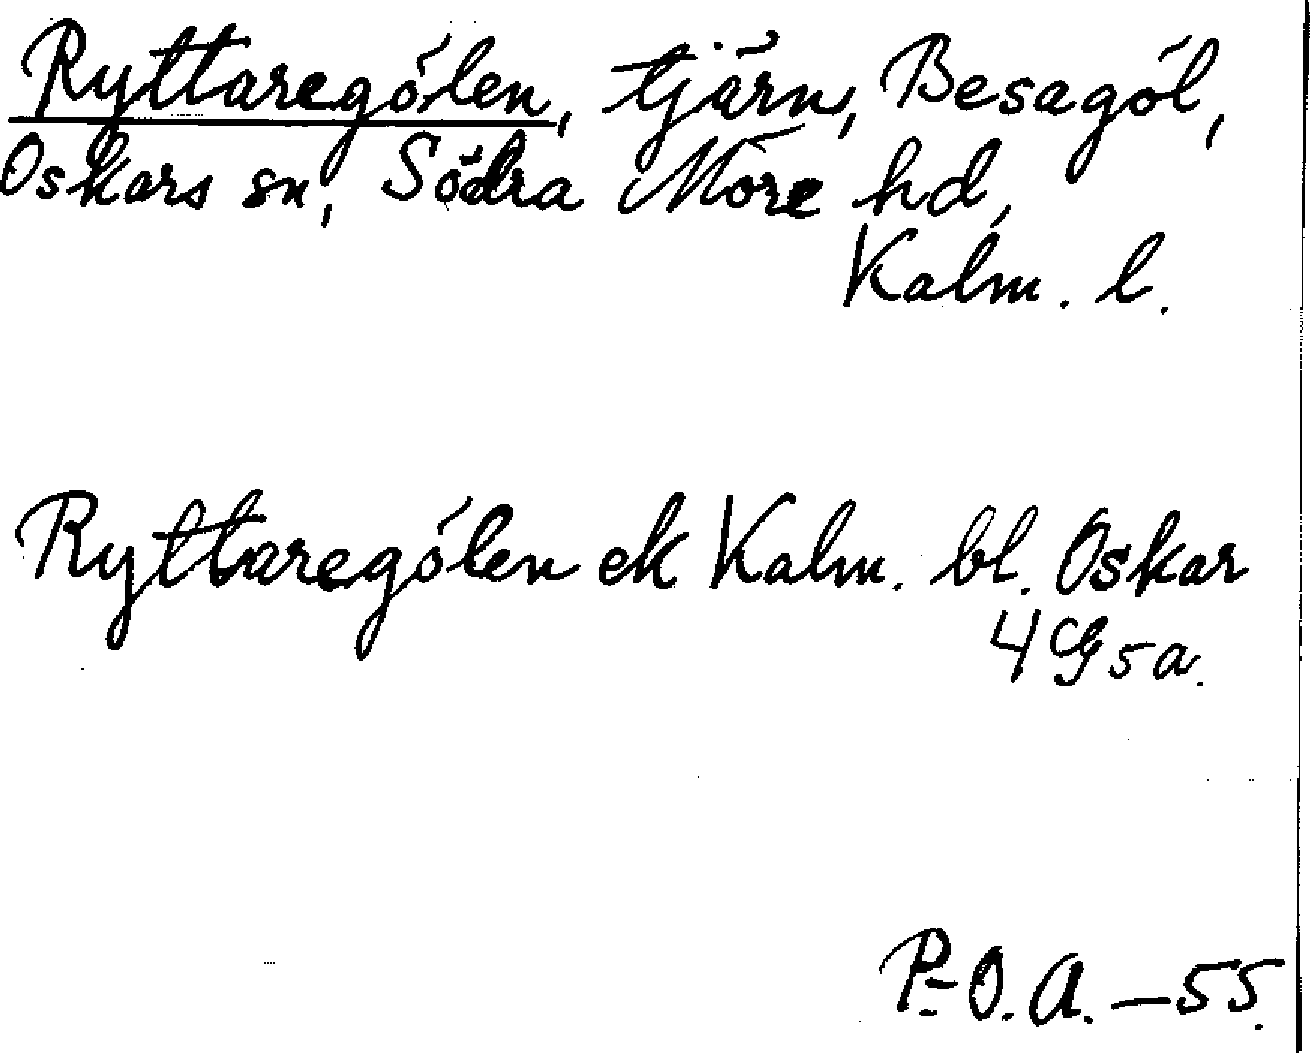 Ryttaregölen, tjärn, Besagöl,
Oskars sn, Södra Möre hd,
Kalm. l.
Ryttaregölen ek Kalm. bl. Oskar
4 G 5 a.
P-O. A. - 55.